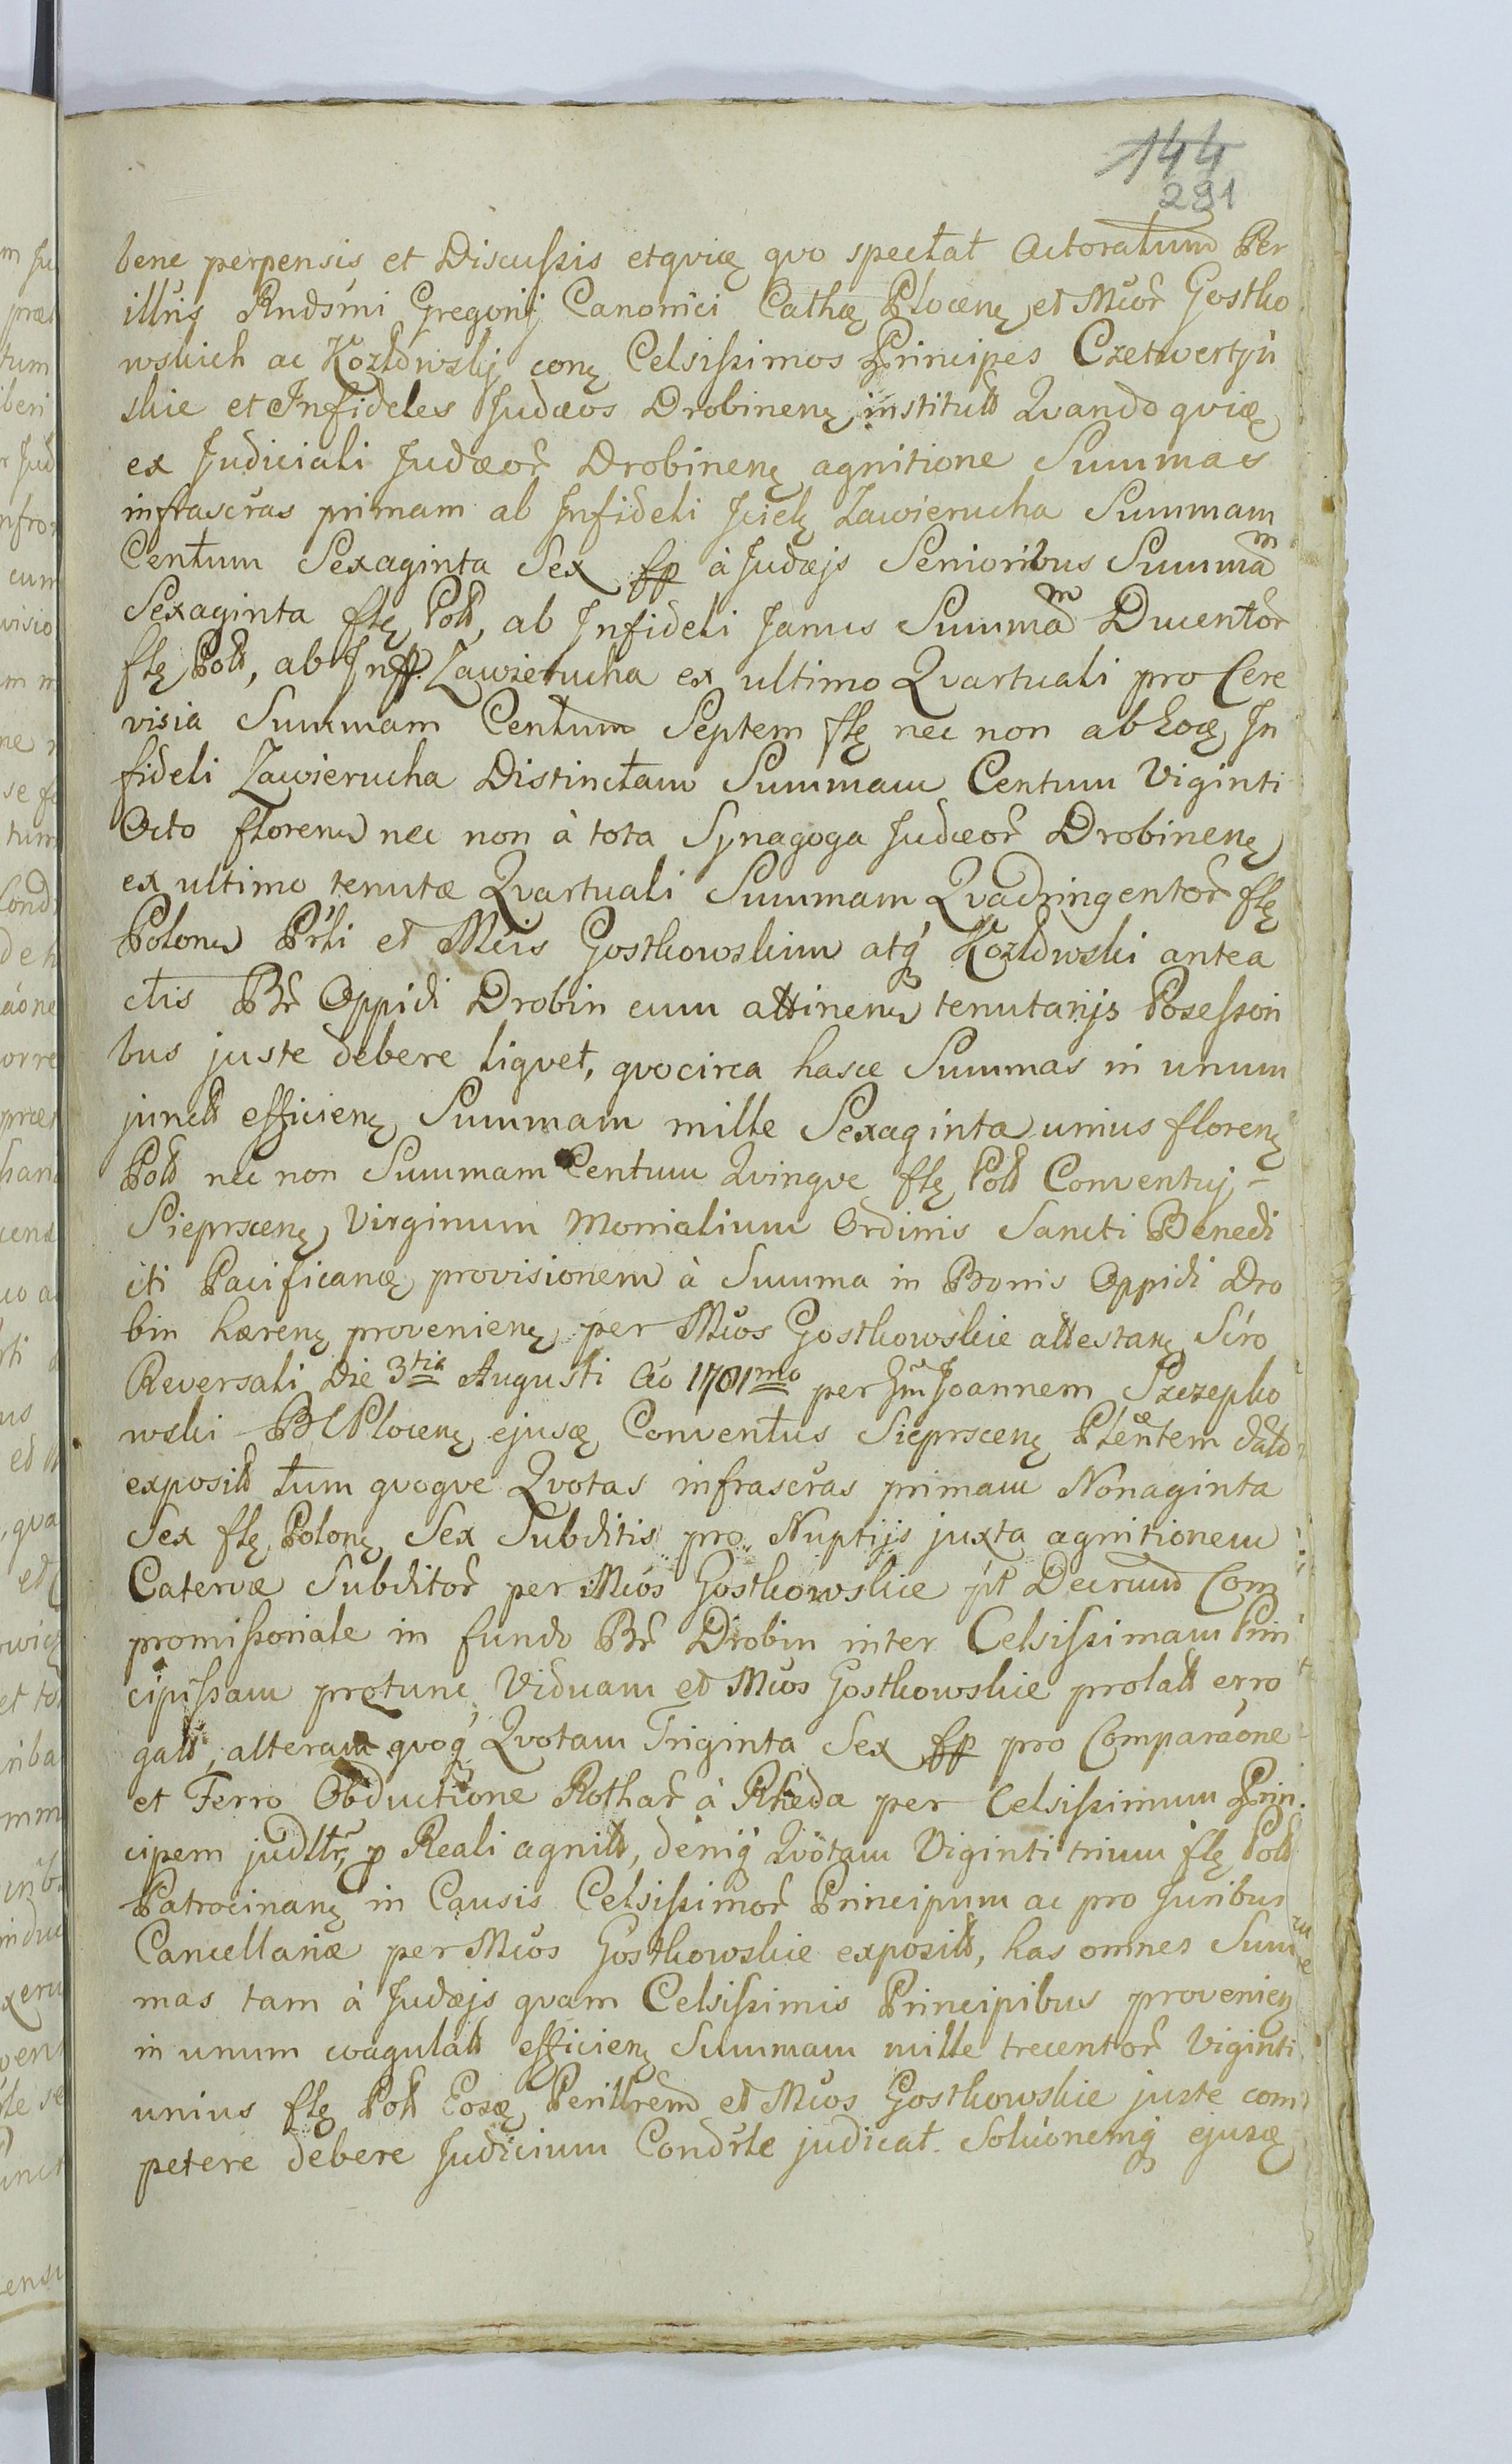 144
291
bene perpensis et Discussis etqviæ qvo spectat Actoratum Per
illŕis Rndśmi Gregorij Canonici Cathæ Plocenę et Mćor̃ Gostko
wskich ac Kozłowskj conę Celsissimos Principes Czetwertyń
skie et Infideles Judæos Drobinenę institutt Qvando qviæ
ex Judiciali Judæor̃ Drobinenę agnitione Summas
infrascŕas primam ab Infideli Jcielę Zawierucha Summam
Centum Sexaginta Sex fp à Judæjs Senioribus Summam
Sexaginta flę Poll, ab Infideli Janus Summam Ducentor̃
flę Poll, ab Inff. Zawierucha ex ultimo Qvartuali pro Cere
visia Summam Centum Septem flę nec non ab Eoæ In
fideli Zawierucha Distinctam Summam Centum Viginti
Octo floren nec non à tota Synagoga Judæor̃ Drobinenę
ex ultimo tenutæ Qvartuali Summam Qvadringentor̃ flę
Polon Pŕli et Mćis Gostkowskim atq́ Kozłowski antea
ctis Br̃ Oppidi Drobin cum attinen tenutarijs Possessori
bus juste debere liqvet, qvocirca hasce Summas in unum
junctt efficienę Summam mille Sexaginta unius florenę
Poll nec non Summam Centum Qvinqve flę Poll Conventuj
Sieprscenę Virginum Monialium Ordinis Sancti Benedi
cti Pacificanæ provisionem à Summa in Bonis Oppidi Dro
bin hærenę provenienę per Mćos Gostkowskie attestanę Sćro
Reversali Die 3tia Augusti Ao 1781mo per Gm̃ Joannem Szczepko
wski BCPlocenę ejusæ Conventus Sieprscenę Plenttem datt
expositt tum qvoqve Qvotas infrascŕas primam Nonaginta
Sex flę Polonę Sex Subditis pro Nuptijs juxta agnitionem
Catervæ Subditor̃ per Mćos Gostkowskie pt̃ Decrum Com
promissoriale in fundo Br̃ Drobin inter Celsissimam Prin
cipissam prętunc Viduam et Mćos Gostkowskie prolatt erro
gatt, alteram qvoq́ Qvotam Triginta Sex fp pro Comparaóne
et Ferro Obductione Rothar̃ à Rheda per Celsissimum Prin
cipem judltŕ, p Reali agnitt, deniq́ Qvotam Viginti trium flę Poll
Patrocinanę in Causis Celsissimor̃ Principum ac pro Juribus
Cancellariæ per Mćos Gostkowskie expositt, has omnes Sum
mas tam à Judæjs qvam Celsissimis Principibus provenienę
in unum coagulatt efficienę Summam mille trecentor̃ Viginti
unius flę Poll Eosæ Perillrem et Mćos Gostkowskie juste com
petere debere Judicium Condŕle judicat. Solućonemq́ ejusæ